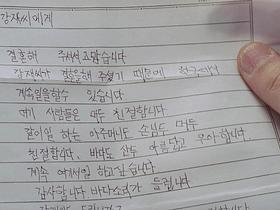 강재씨에게
결혼해 주셔서 고맙습니다
강재씨가 결혼을해 주셨기 때문에 한국에서
계속일을할수 있습니다
여기 사람들은 모두 친절합니다
같이일 하는 아주머니도 손님도 모두
친절합니다. 바다도 산도 아름답고 좋아 합니다.
계속 여기서일 하고 싶습니다
감사합니다 바다소리가 들립니다